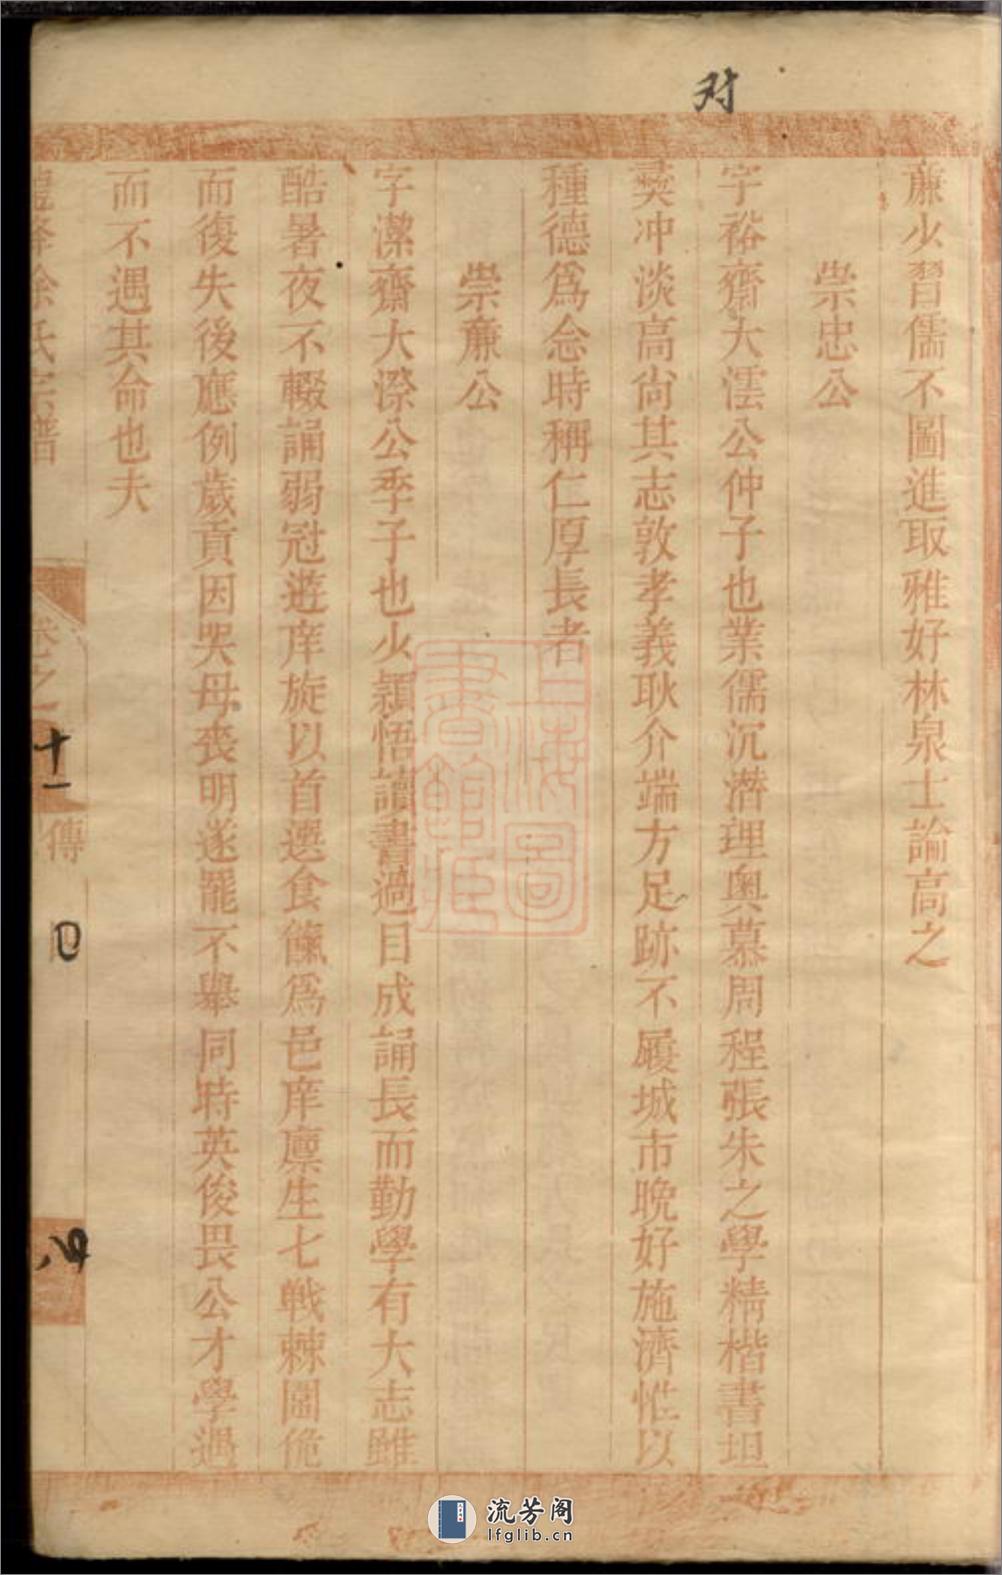 对
蔗少習儒不圖進取雅好林泉士論高之
崇忠公
字裕齋大澐公仲子也業儒沉潛理奧慕周程張朱之學精楷書坦
夷冲淡高尚其志敦孝義耿介端方足跡不履城市晚好施濟惟以
種德爲念時稱仁厚長者
崇蔗公
字潔齋大深公季子也少穎悟讀書過目成誦長而勤學有大志雖
酷暑夜不輟誦弱冠遊庠旋以首選食餼爲邑庠廪生七戰棘圍倦
而復失後應例歲貢因哭母丧明遂罷不舉同時英俊畏公才學遇
而不遇其命也夫
徐氏宗譜
卷之十一
傳
上海圖書館藏
流芳阁
lfglib.cn